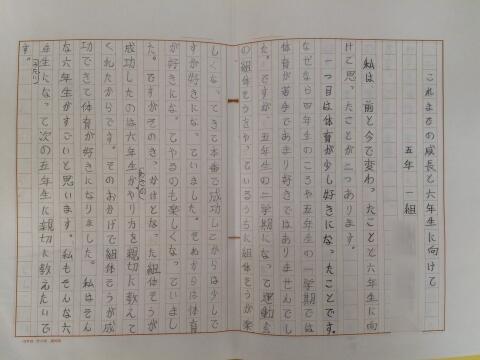 これまでの成長と六年生に向けて
五年 一組
私は、前と今で変わったことと六年生に向
けて思ったことが二つあります。
一つ目は体育が少し好きになったことです。
なぜなら四年生のころや五年生の一学期では
体育が苦手であまり好きではありませんでし
た。ですが、五年生の二学期になって運動会
の組体そうをやっているうちに組体そうが楽
しくなってきて本番で成功してからは少しで
すが好きになっていました。そのからは体育
が好きになってやるのも楽しくなっていまし
た。ですがそのきっかけとなった組体そうが
成功したのは六年生がやり方を親切に教えて
くれたからです。そのおかげで組体そうが成
功できて体育が好きになりました。私はそん
な六年生がすごいと思います。私もそんな六
年生になって次の五年生に親切に教えたいで
す。